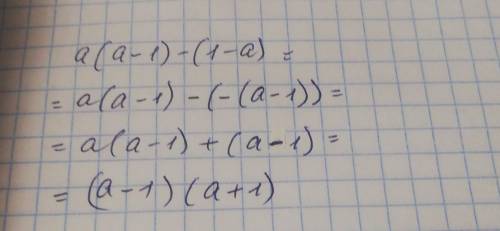 a(a-1)-(1-a) =
= a(a-1) - (-(a-1)) =
= a(a-1) + (a-1) =
= (a-1)(a+1)